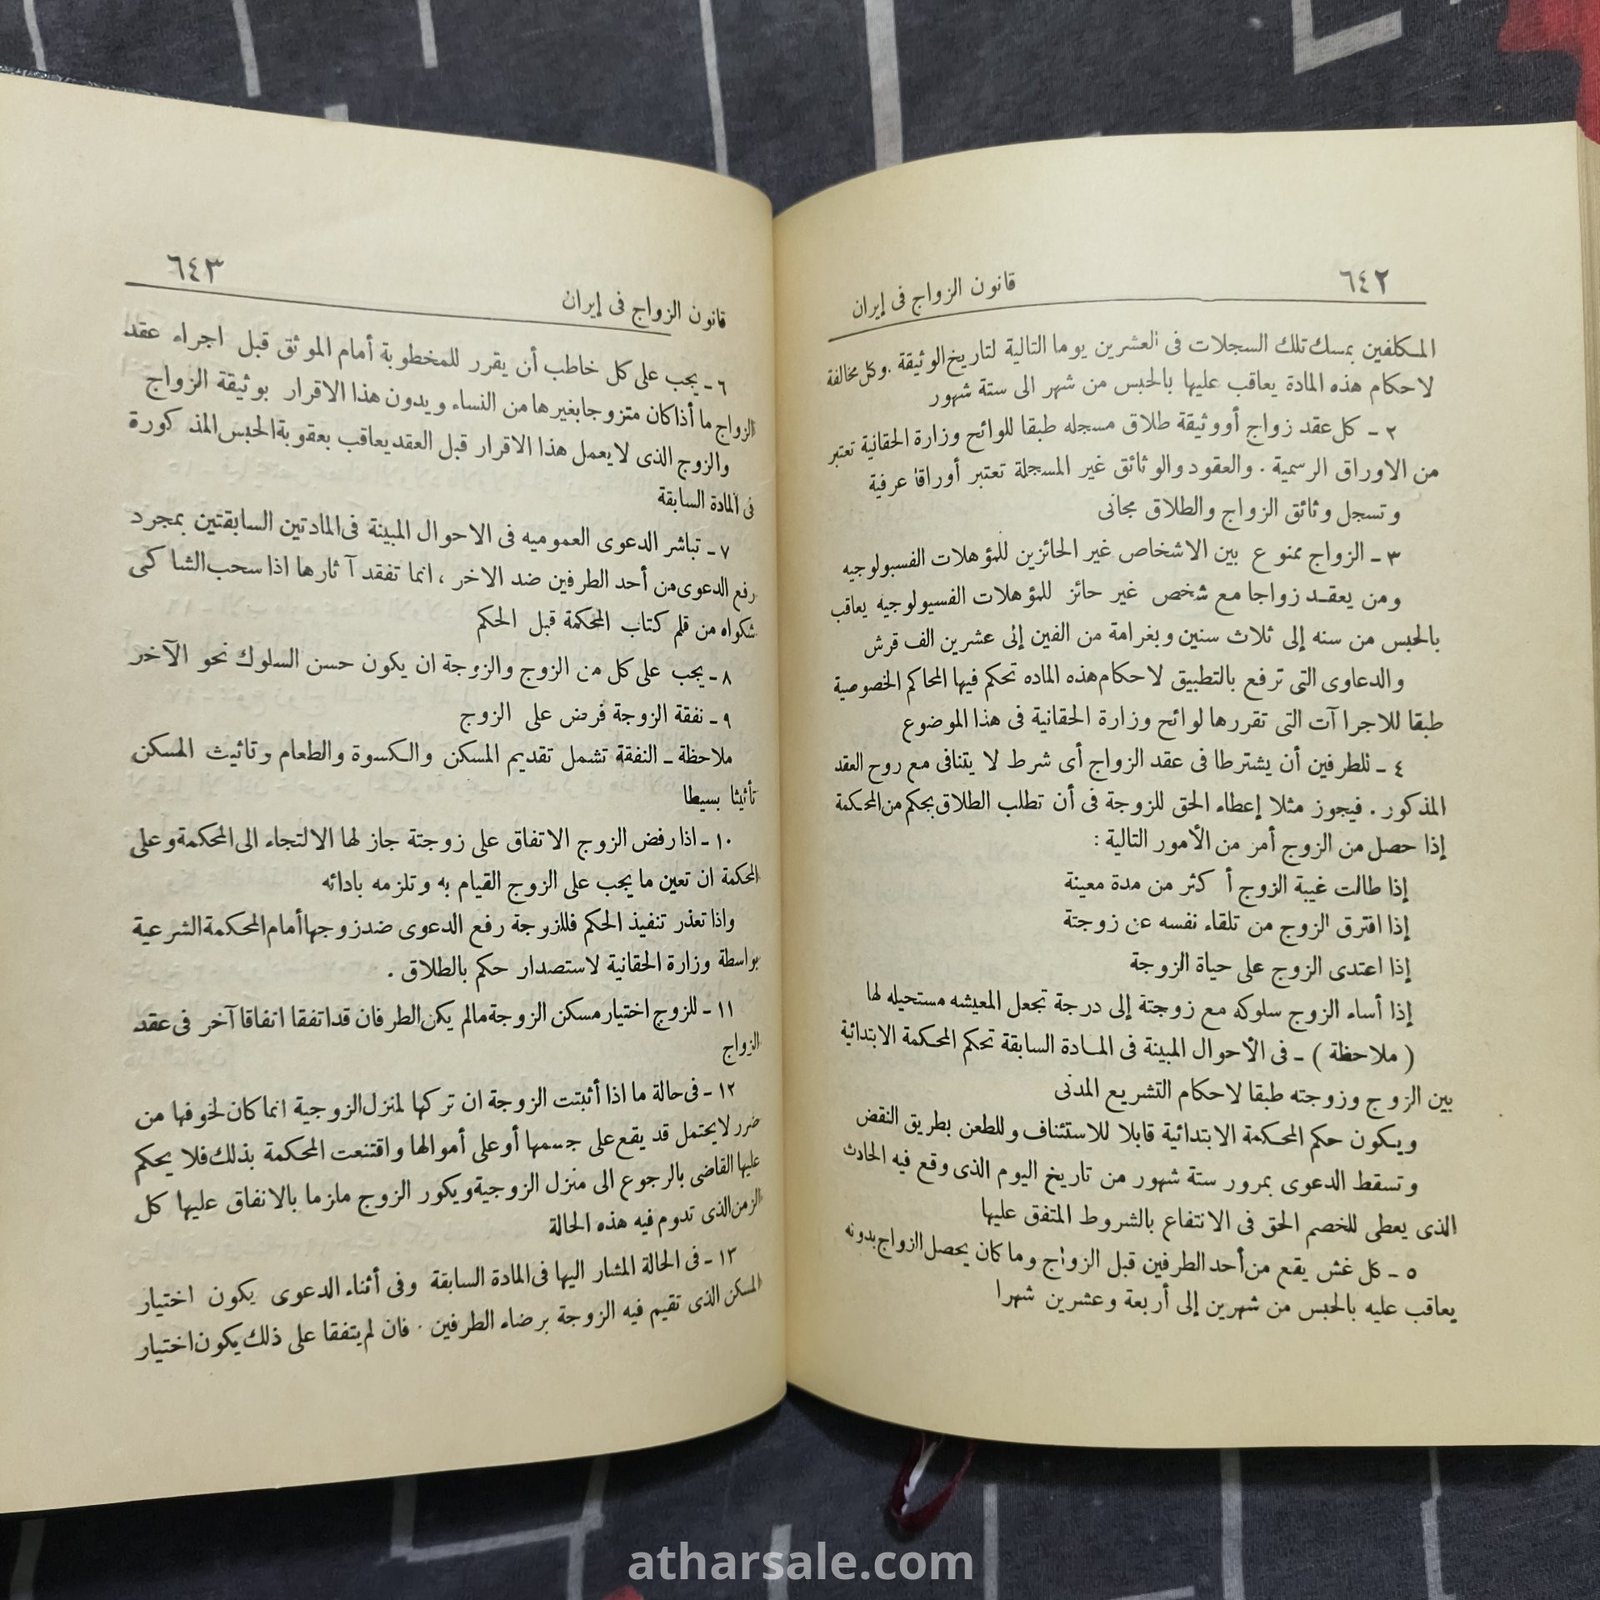 ٦٤٢
قانون الزواج فى إيران
المكلفين بمسك تلك السجلات فى العشرين يوما التالية لتاريخ الوثيقة . وكل مخالفة
لاحكام هذه المادة يعاقب عليها بالحبس من شهر الى ستة شهور
٢ ـ كل عقد زواج أووثيقة طلاق مسجله طبقا للوائح وزارة الحقانية تعتبر
من الاوراق الرسمية . والعقود والوثائق غير المسجلة تعتبر أوراقا عرفية
وتسجل وثائق الزواج والطلاق مجانى
٣ ـ الزواج ممنوع بين الاشخاص غير الحائزين للمؤهلات الفسيولوجيه
ومن يعقد زواجا مع شخص غير حائز للمؤهلات الفسيولوجيه يعاقب
بالحبس من سنه إلى ثلاث سنين وبغرامة من الفين إلى عشرين الف قرش
والدعاوى التى ترفع بالتطبيق لاحكام هذه الماده تحكم فيها المحاكم الخصوصية
طبقا للاجرا آت التى تقررها لوائح وزارة الحقانية فى هذا الموضوع
٤ ـ للطرفين أن يشترطا فى عقد الزواج أى شرط لا يتنافى مع روح العقد
المذكور . فيجوز مثلا إعطاء الحق للزوجة فى أن تطلب الطلاق بحكم من المحكمة
إذا حصل من الزوج أمر من الأمور التالية :
إذا طالت غيبة الزوج أكثر من مدة معينة
إذا افترق الزوج من تلقاء نفسه عن زوجتة
إذا اعتدى الزوج على حياة الزوجة
إذا أساء الزوج سلوكه مع زوجتة إلى درجة تجعل المعيشه مستحيله لها
( ملاحظة ) ـ فى الأحوال المبينة فى المادة السابقة تحكم المحكمة الابتدائية
بين الزوج وزوجته طبقا لاحكام التشريع المدنى
ويكون حكم المحكمة الابتدائية قابلا للاستئناف وللطعن بطريق النقض
وتسقط الدعوى بمرور ستة شهور من تاريخ اليوم الذى وقع فيه الحادث
الذى يعطى للخصم الحق فى الانتفاع بالشروط المتفق عليها
٥ ـ كل غش يقع من أحد الطرفين قبل الزواج وما كان يحصل الزواج بدونه
يعاقب عليه بالحبس من شهرين إلى أربعة وعشرين شهرا
٦٤٣
قانون الزواج فى إيران
٦ ـ يجب على كل خاطب أن يقرر للمخطوبة أمام الموثق قبل اجراء عقد
الزواج ما أذا كان متزوجا بغيرها من النساء ويدون هذا الاقرار بوثيقة الزواج
والزوج الذى لا يعمل هذا الاقرار قبل العقد يعاقب بعقوبة الحبس المذكورة
فى المادة السابقة
٧ ـ تباشر الدعوى العموميه فى الاحوال المبينة فى المادتين السابقتين بمجرد
رفع الدعوى من أحد الطرفين ضد الاخر ، انما تفقد آثارها اذا سحب الشاكى
شكواه من قلم كتاب المحكمة قبل الحكم
٨ ـ يجب على كل من الزوج والزوجة ان يكون حسن السلوك نحو الآخر
٩ ـ نفقة الزوجة فرض على الزوج
ملاحظة ـ النفقة تشمل تقديم المسكن والكسوة والطعام وتاثيث المسكن
تأثيثا بسيطا
١٠ ـ اذا رفض الزوج الاتفاق على زوجتة جاز لها الالتجاء الى المحكمة وعلى
المحكمة ان تعين ما يجب على الزوج القيام به وتلزمه بادائه
واذا تعذر تنفيذ الحكم فللزوجة رفع الدعوى ضد زوجها أمام المحكمة الشرعية
بواسطة وزارة الحقانية لاستصدار حكم بالطلاق .
١١ ـ للزوج اختيار مسكن الزوجة مالم يكن الطرفان قد اتفقا اتفاقا آخر فى عقد
الزواج
١٢ ـ فى حالة ما اذا أثبتت الزوجة ان تركها لمنزل الزوجية انما كان لخوفها من
ضرر لا يحتمل قد يقع على جسمها أو على أموالها واقتنعت المحكمة بذلك فلا يحكم
عليها القاضى بالرجوع الى منزل الزوجية ويكور الزوج ملزما بالانفاق عليها كل
الزمن الذى تدوم فيه هذه الحالة
١٣ ـ فى الحالة المشار اليها فى المادة السابقة وفى أثناء الدعوى يكون اختيار
المسكن الذى تقيم فيه الزوجة برضاء الطرفين . فان لم يتفقا على ذلك يكون اختيار
atharsale.com